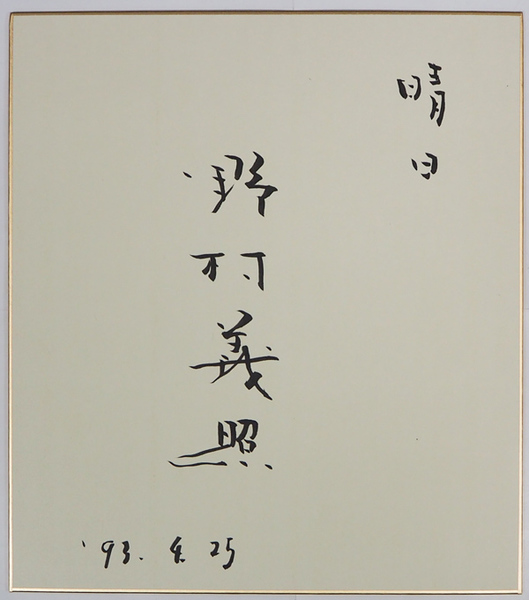 晴日
野村義照
'93. 4. 25